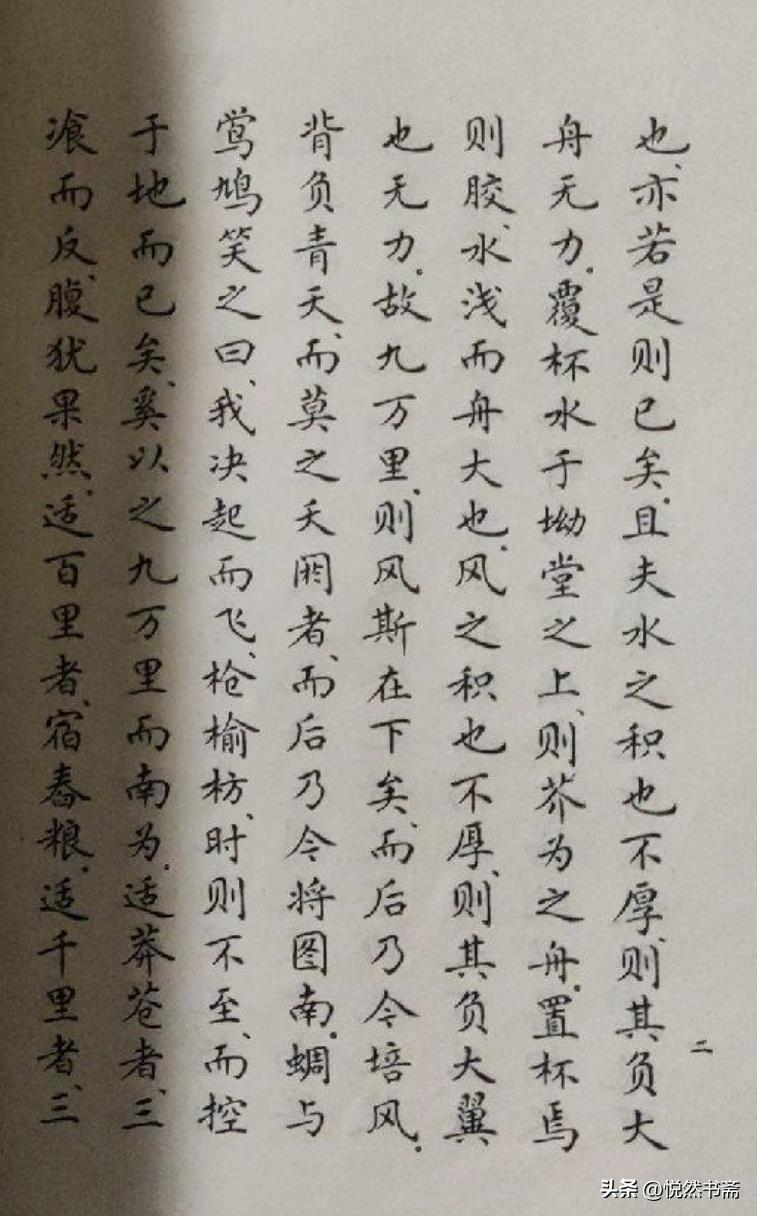 也、亦若是则已矣。且夫水之积也不厚、则其负大
舟无力。覆杯水于坳堂之上、则芥为之舟。置杯焉
则胶、水浅而舟大也。风之积也不厚、则其负大翼
也无力。故九万里、则风斯在下矣、而后乃今培风。
背负青天、而莫之夭阏者、而后乃今将图南。蜩与
莺鸠笑之曰、我决起而飞、枪榆枋、时则不至、而控
于地而已矣、奚以之九万里而南为。适莽苍者、三
飡而反、腹犹果然。适百里者、宿舂粮。适千里者、三
二
头条 @悦然书斋